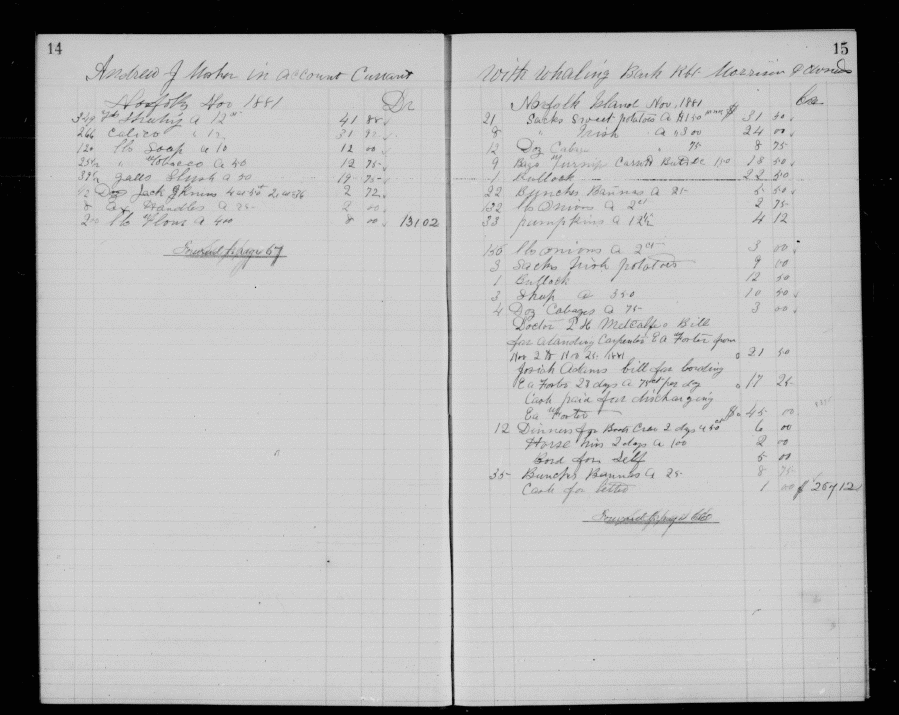 14
Andrew J Mosher in account Currant
Norfolk Nov 1881 Dr
349 yds Sheeting a 12 cts 41 88
266 Calico " 12 31 92
120 lb Soap a 10 12 00
25½ " Tobacco a 50 12 75
39½ galls a 50 19 75
12 Doz Jack Knives 2 72
8 Ax Handles a 25 2 00
200 lb Flour a 400 8 00 131 02
Forward to page 67
15
With Whaling Bark Morrison & Owners
Norfolk Island Nov, 1881 Cr
21 Sacks Sweet potatoes a $1.50 $ 31 50
8 " Irish " a 300 24 00
12 Doz 75 8 75
9 Bags Turnip Carrots 18 50
1 Bullock 22 50
22 Bunches Bannas a 25 5 50
132 lb Onions a 2 cts 2 75
33 pumpkins a 12½ 4 12
150 lb onions a 2 cts 3 00
3 Sacks Irish potatoes 9 00
1 Bullock 12 50
3 Sheep a 350 10 50
4 Doz Cabages a 75 3 00
Doctor P H Metcalfe Bill
for attending Carpenter E A Forter from
Nov 2 to Nov 25 1881 21 50
Josiah Adams bill for bording
E a Forter 23 days a 75 cts per day 17 25
Cash paid for discharging
E a Forter $ 45 00
12 Dinners for Boats Crew 2 days a 50 cts 6 00
Horse hire 2 days a 100 2 00
Bord for Self 5 00
35 Bunches Bannas a 25 8 75
Cash for 1 00 $ 267 12
Forward to page 66